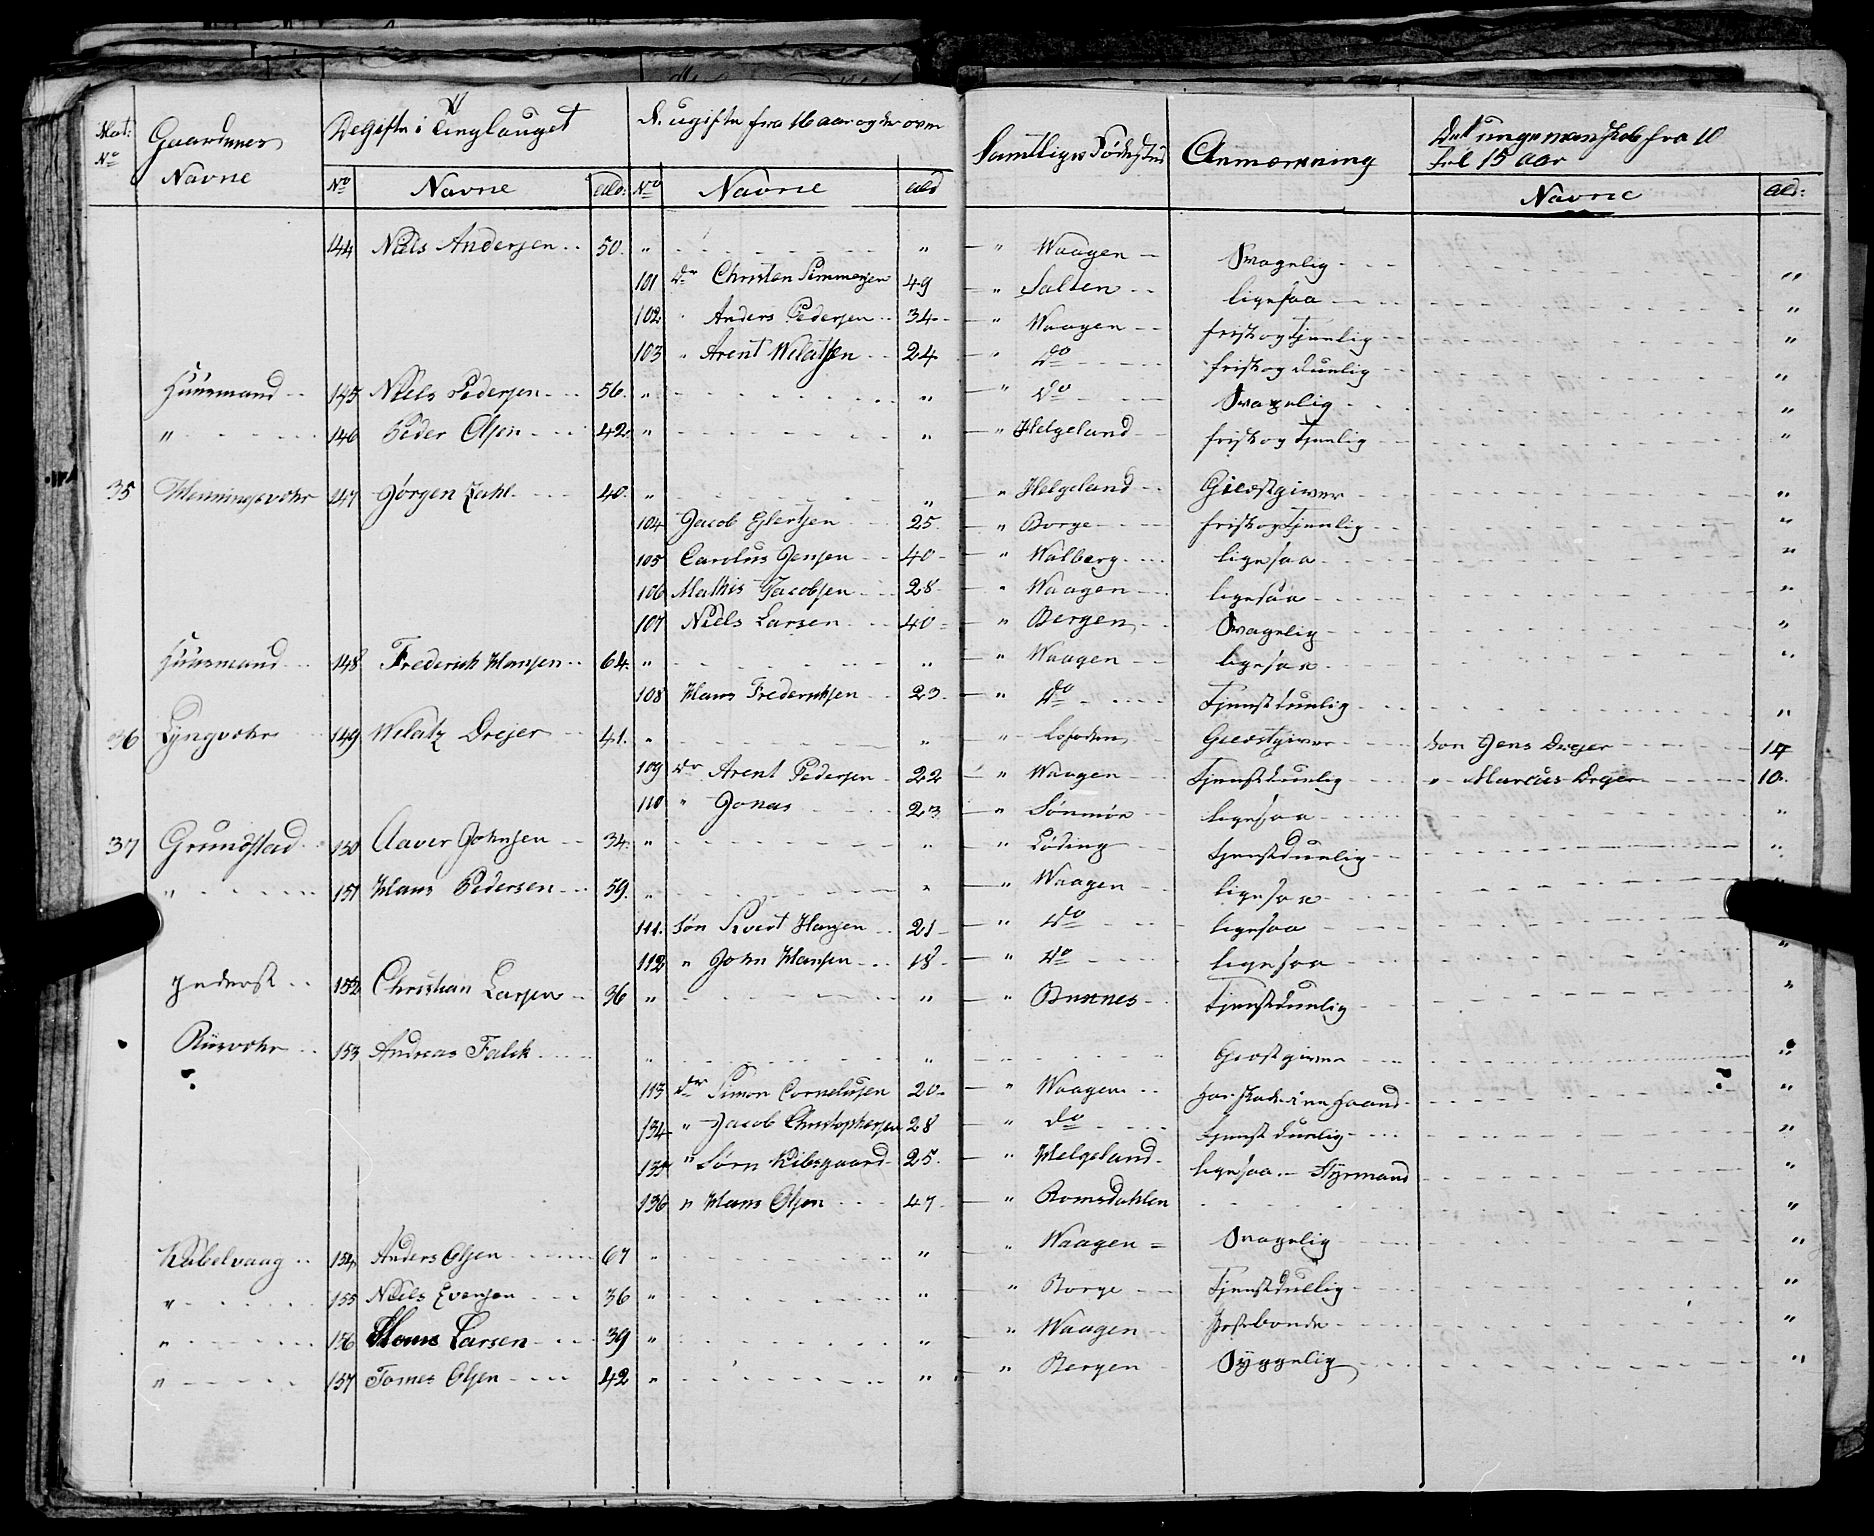 Mat: No Gaardenes Navne De Gifte i Tinglauget D. ugifte fra 16 aar og der over Samtliges Fødested Anmærkning Det unge mandskab fra 10 til 15 aar
No Navne Ald: No Navne Ald Navne Ald:
144 Niels Andersen 50. " " " Waagen Svagelig "
101 Dr Christen Simmensen 49 " Salten ligesaa "
102 " Anders Pedersen 34 " Waagen frisk og tjenlig "
103 " Arent Welatsen 24 " Do frisk og duelig "
Huusmand 145 Niels Pedersen 56. " " " Do Svagelig "
" 146 Peder Olsen 42. " " " Helgeland frisk og tjenlig "
35 Henningsvohr 147 Jørgen Zahl 40. " " " Helgeland Giestgiver "
104 Jacob Elertsen 25. " Borge frisk og tjenlig "
105 Carolus Jensen 40 " Walberg ligesaa "
106 Mathis Jacobsen 28 " Waagen ligesaa "
107 Niels Larsen 40 " Bergen Svagelig "
Huusmand 148 Frederich Hansen 64. " " " Waagen ligesaa "
108 Hans Frederichsen 23. " Do Tjenstduelig "
36 Lyngvohr 149 Welatz Drejer 41. " " " Lofoden Giestgiver Søn Jens Drejer 14
109 Dr Arent Pedersen 22 " Waagen Tjenstduelig " Marcus Drejer 10.
110 " Jonas 23 " Sønmør ligesaa "
37 Grundstad 150 Aaver Johnsen 34. " " " Løding tjenstduelig "
" 151 Hans Pedersen 59. " " " Waagen ligesaa "
111. Søn Sivert Hansen 21 " Do ligesaa
112 " John Hansen 18 " Do ligesaa "
Inderst 152 Christian Larsen 36 " " " Buxnes Tjenstduelig "
Riisvohr 153 Andreas Falch " " " Giestgiver "
113 Dr Simon Cornelusen 20 " Waagen har skade i en haand "
134 " Jacob Christophersen 28 " Do tjenstduelig "
135 " Sørn Kibsgaard 25. " Helgeland ligesaa - Styrmand "
136 " Hans Olsen 47 " Romsdahlen "
Kabelvaag 154 Anders Olsen 67 " " " Waagen Svagelig "
" 155 Niels Evensen 36 " " " Borge Tjenstduelig "
" 156 Hans Larsen 39 " " " Waagen Postbonde "
" 157 Tomes Olsen 42 " " " Bergen Syggelig "